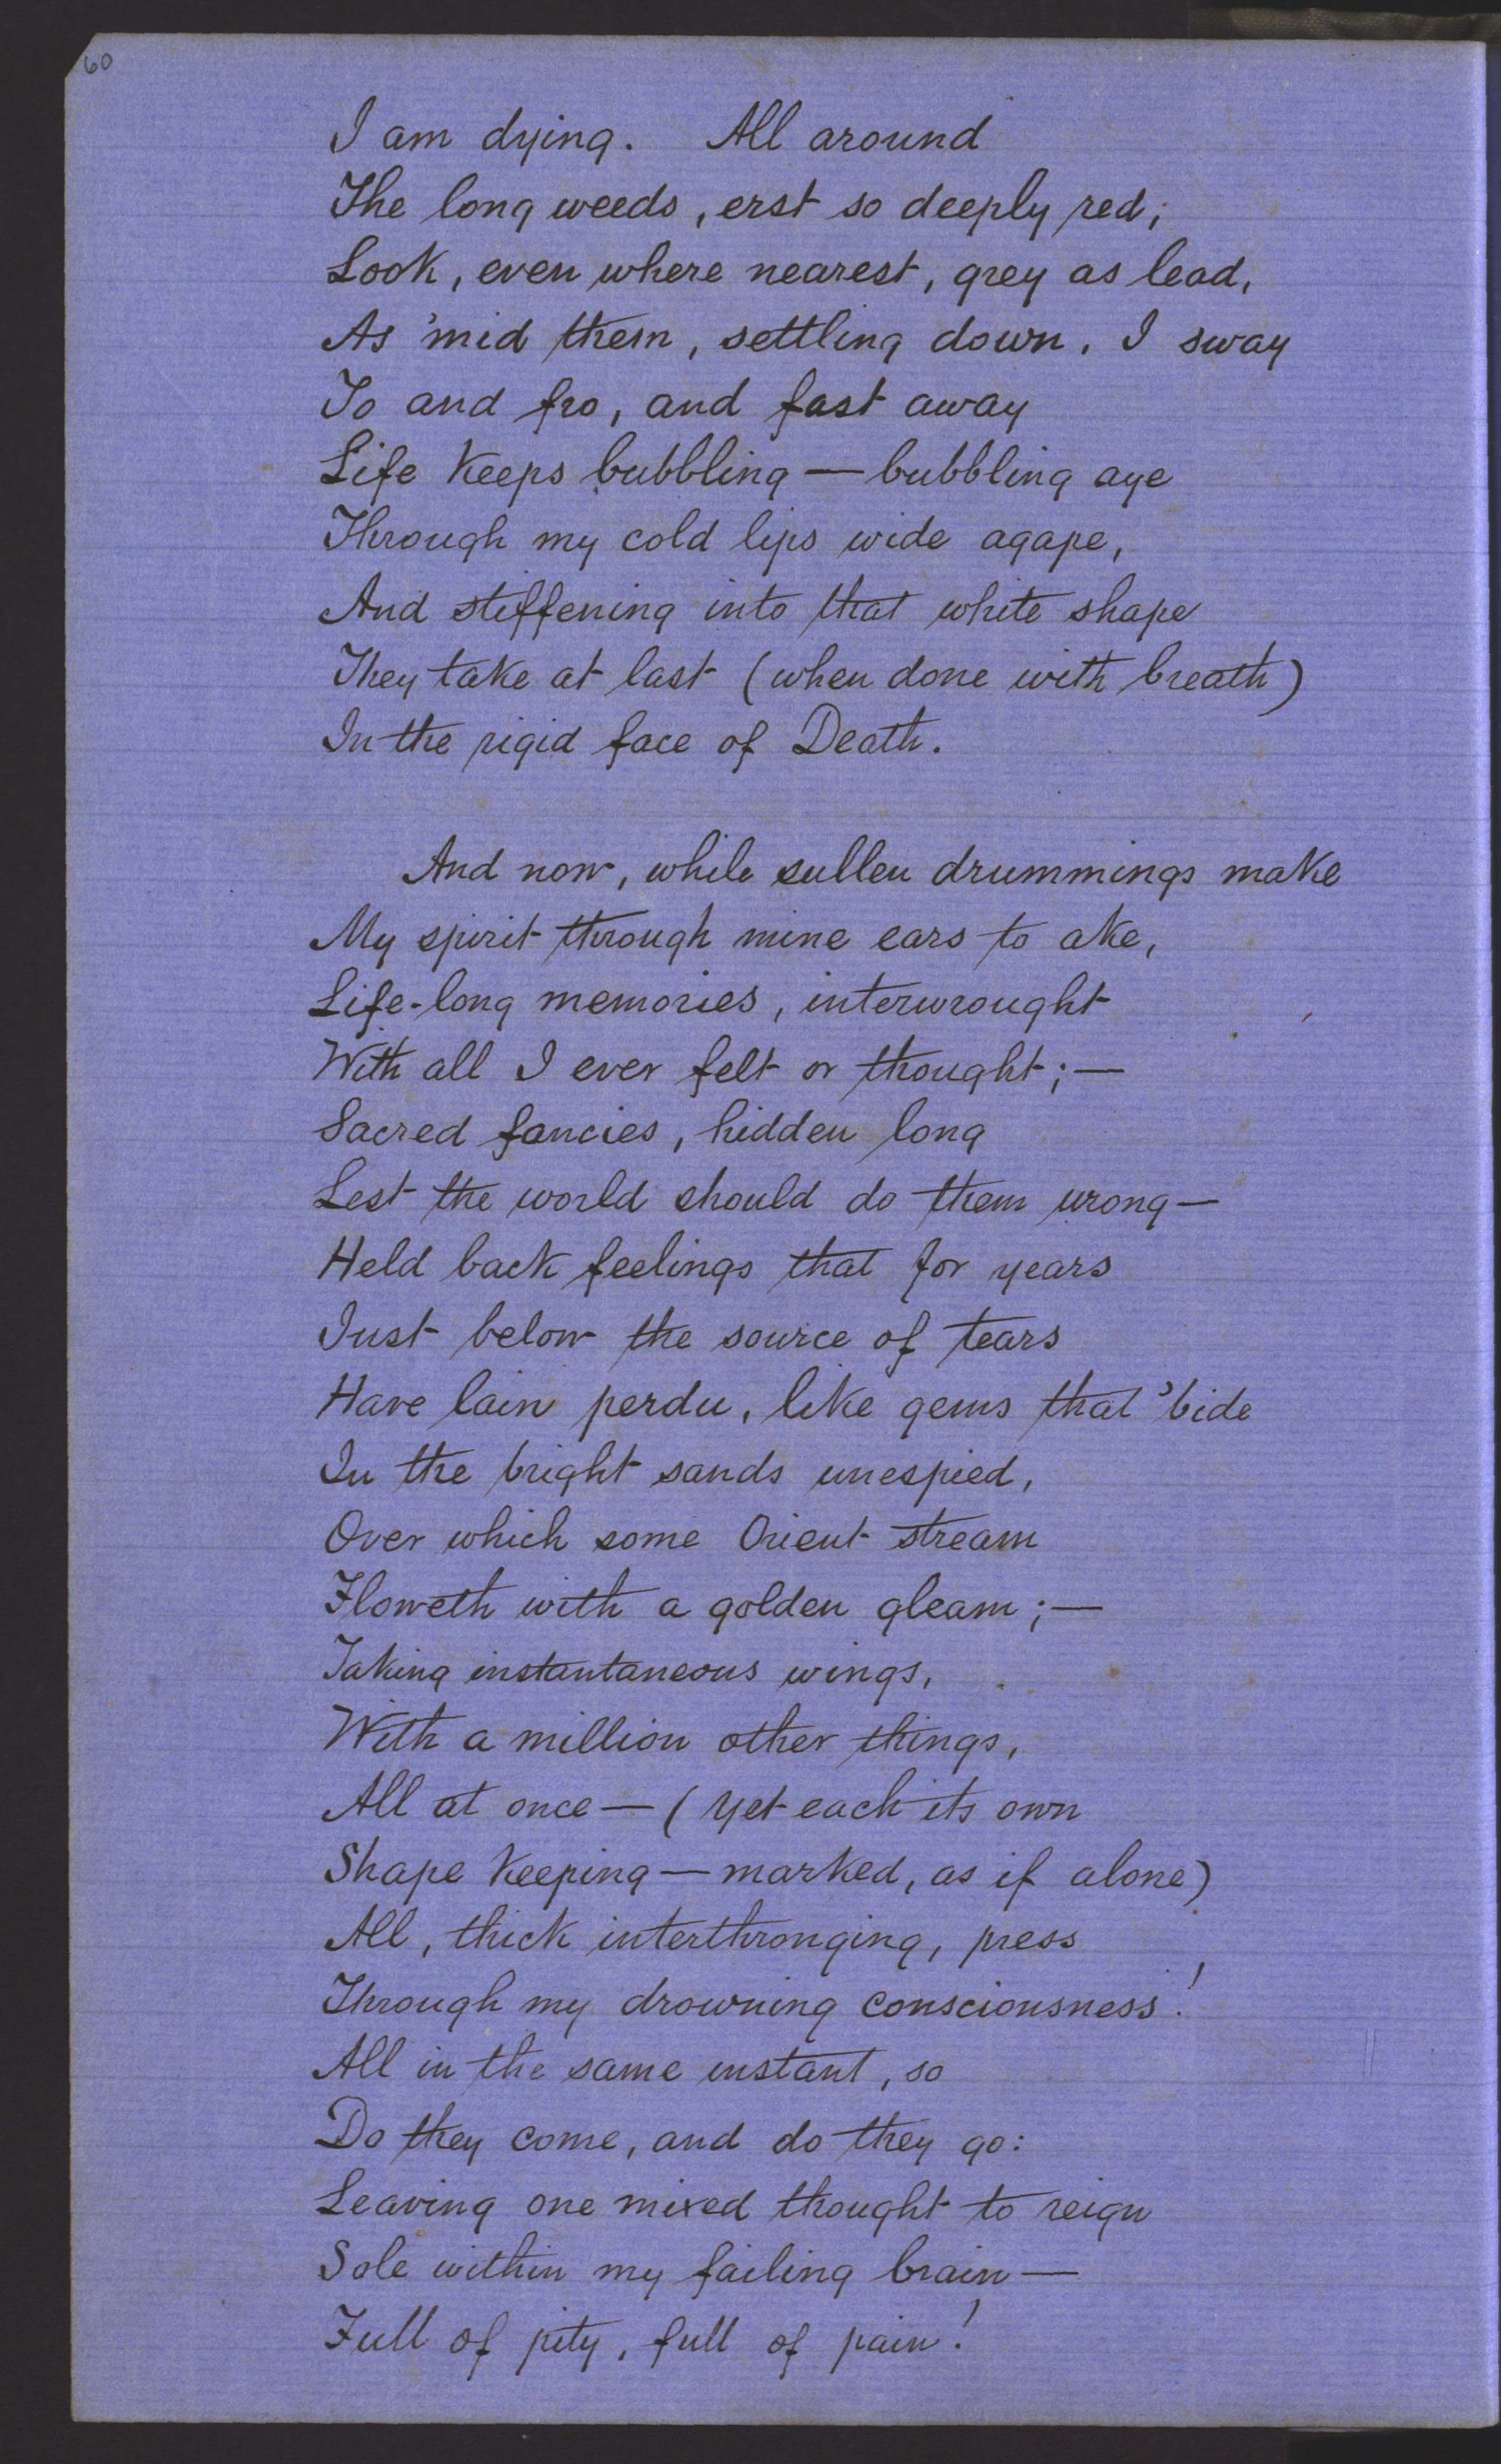 60
I am dying. All around
The long weeds, erst so deeply red;
Look, even where nearest, grey as lead,
As 'mid them, settling down, I sway
To and fro, and fast away
Life keeps bubbling — bubbling aye
Through my cold lips wide agape,
And stiffening into that white shape
They take at last (when done with breath)
In the rigid face of Death.
And now, while sullen drummings make
My spirit through mine ears to ake,
Life-long memories, interwrought
With all I ever felt or thought; —
Sacred fancies, hidden long
Lest the world should do them wrong —
Held back feelings that for years
Just below the source of tears
Have lain perdu, like gems that 'bide
In the bright sands unespied,
Over which some Orient stream
Floweth with a golden gleam; —
Taking instantaneous wings,
With a million other things,
All at once — (yet each its own
Shape keeping — marked, as if alone)
All, thick interthronging, press
Through my drowning consciousness!
All in the same instant, so
Do they come, and do they go:
Leaving one mixed thought to reign
Sole within my failing brain —
Full of pity, full of pain!